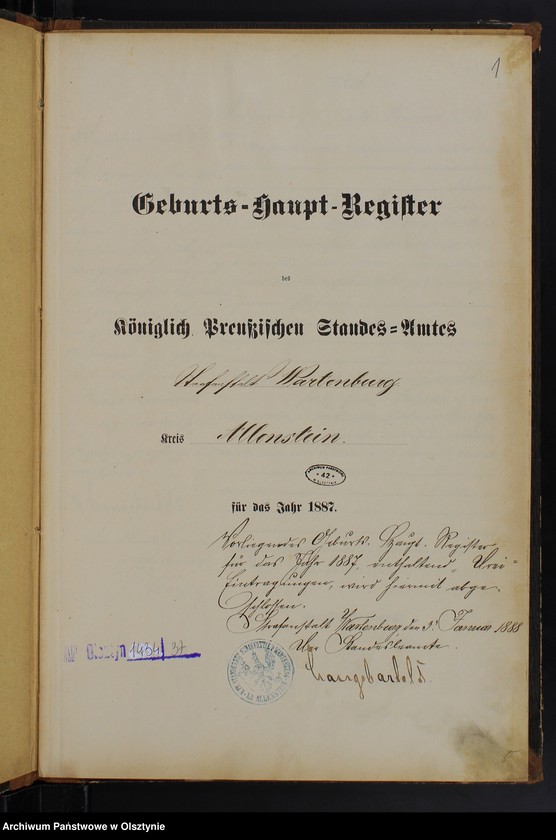 1
Geburts-Haupt-Register
des
Königlich Preußischen Standes-Amtes
Strafanstalt Wartenburg
Kreis Allenstein.
ARCHIWUM PAŃSTWOWE
* 42 *
W OLSZTYNIE
für das Jahr 1887.
Vorliegendes Geburts-Haupt-Register
für das Jahr 1887, enthaltend "Drei"
Eintragungen, wird hiermit abge-
schlossen.
Strafanstalt Wartenburg den 3. Januar 1888
Der Standesbeamte.
AP Olsztyn 1434/37
Archiwum Państwowe w Olsztynie